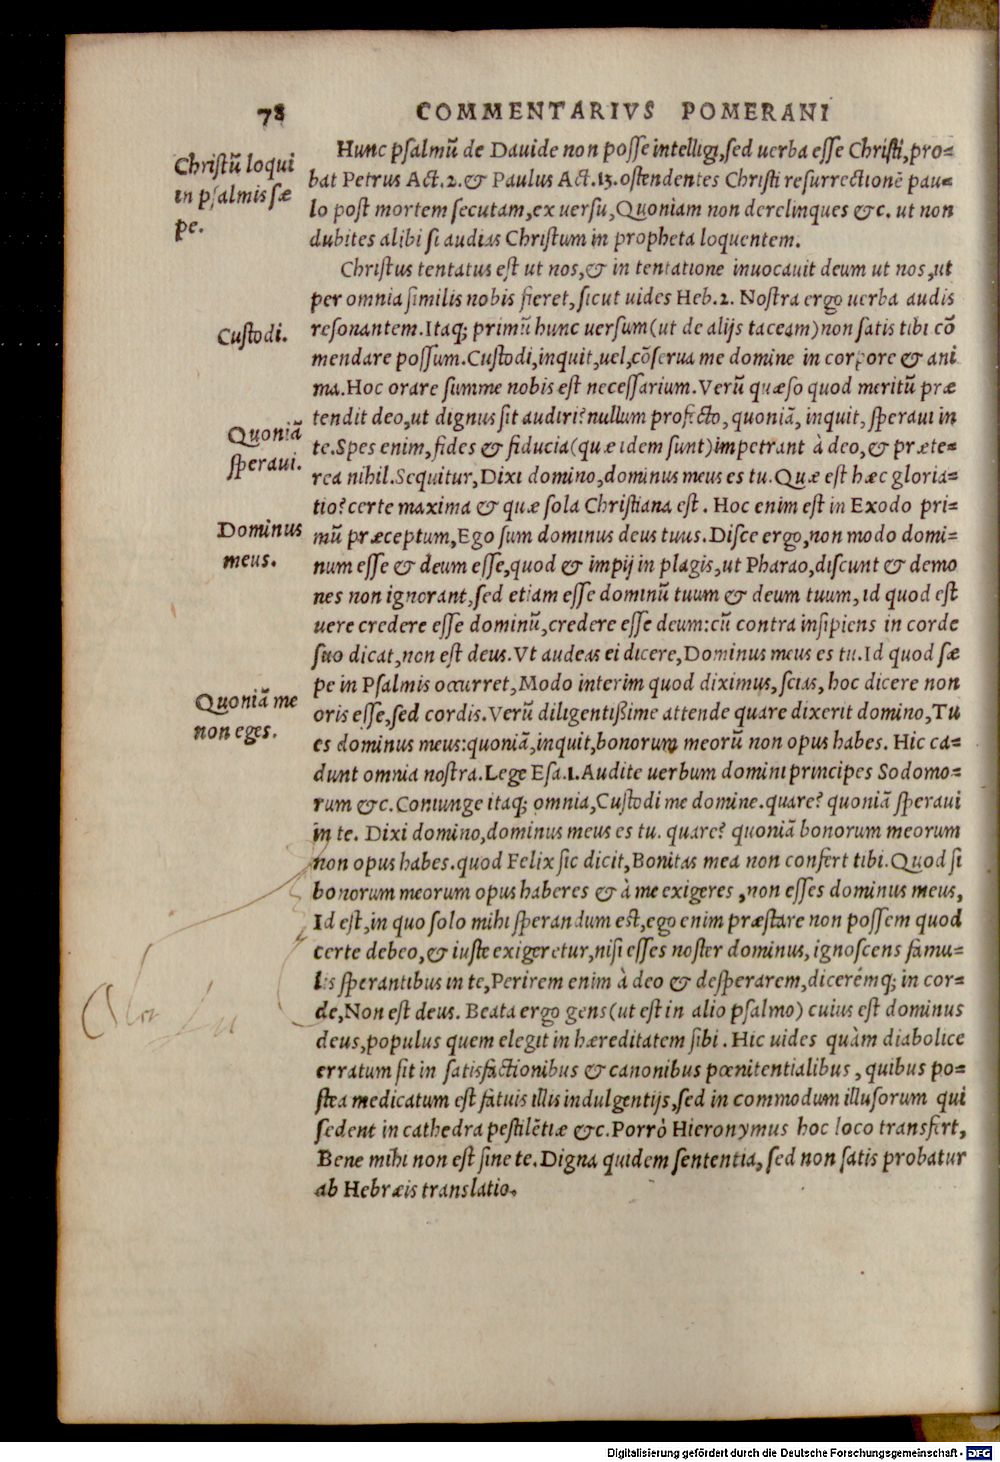 78 COMMENTARIVS POMERANI
Christũ loqui
in psalmis sæ
pe.
Hunc psalmũ de Dauide non posse intelligi, sed uerba esse Christi, pro-
bat Petrus Act. 2. & Paulus Act. 13. ostendentes Christi resurrectionẽ pau-
lo post mortem secutam, ex uersu, Quoniam non derelinques &c. ut non
dubites alibi si audias Christum in propheta loquentem.
Christus tentatus est ut nos, & in tentatione inuocauit deum ut nos, ut
per omnia similis nobis fieret, sicut uides Heb. 2. Nostra ergo uerba audis
Custodi.
resonantem. Itaq; primũ hunc uersum (ut de alijs taceam) non satis tibi cõ
mendare possum. Custodi, inquit, uel, cõserua me domine in corpore & ani
ma. Hoc orare summe nobis est necessarium. Verũ quæso quod meritũ præ
tendit deo, ut dignus sit audiri? nullum profecto, quoniã, inquit, speraui in
Quoniã
speraui.
te. Spes enim, fides & fiducia (quæ idem sunt) impetrant à deo, & præte-
rea nihil. Sequitur, Dixi domino, dominus meus es tu. Quæ est hæc gloria-
tio? certe maxima & quæ sola Christiana est. Hoc enim est in Exodo pri-
Dominus
meus.
mũ præceptum, Ego sum dominus deus tuus. Disce ergo, non modo domi-
num esse & deum esse, quod & impij in plagis, ut Pharao, discunt & demo
nes non ignorant, sed etiam esse dominũ tuum & deum tuum, id quod est
uere credere esse dominũ, credere esse deum: cũ contra insipiens in corde
suo dicat, non est deus. Vt audeas ei dicere, Dominus meus es tu. Id quod sæ
pe in Psalmis occurret, Modo interim quod diximus, scias, hoc dicere non
Quoniã me
non eges.
oris esse, sed cordis. Verũ diligentißime attende quare dixerit domino, Tu
es dominus meus: quoniã, inquit, bonorum meorũ non opus habes. Hic ca-
dunt omnia nostra. Lege Esa. 1. Audite uerbum domini principes Sodomo-
rum &c. Coniunge itaq; omnia, Custodi me domine. quare? quoniã speraui
in te. Dixi domino, dominus meus es tu. quare? quoniã bonorum meorum
non opus habes. quod Felix sic dicit, Bonitas mea non confert tibi. Quod si
bonorum meorum opus haberes & à me exigeres, non esses dominus meus,
Id est, in quo solo mihi sperandum est, ego enim præstare non possem quod
certe debeo, & iuste exigeretur, nisi esses noster dominus, ignoscens famu-
lis sperantibus in te, Perirem enim à deo & desperarem, dicerémq; in cor-
de, Non est deus. Beata ergo gens (ut est in alio psalmo) cuius est dominus
deus, populus quem elegit in hæreditatem sibi. Hic uides quàm diabolice
erratum sit in satisfactionibus & canonibus pœnitentialibus, quibus po-
stea medicatum est fatuis illis indulgentijs, sed in commodum illusorum qui
sedent in cathedra pestilẽtiæ &c. Porrò Hieronymus hoc loco transfert,
Bene mihi non est sine te. Digna quidem sententia, sed non satis probatur
ab Hebræis translatio.
Digitalisierung gefördert durch die Deutsche Forschungsgemeinschaft - DFG